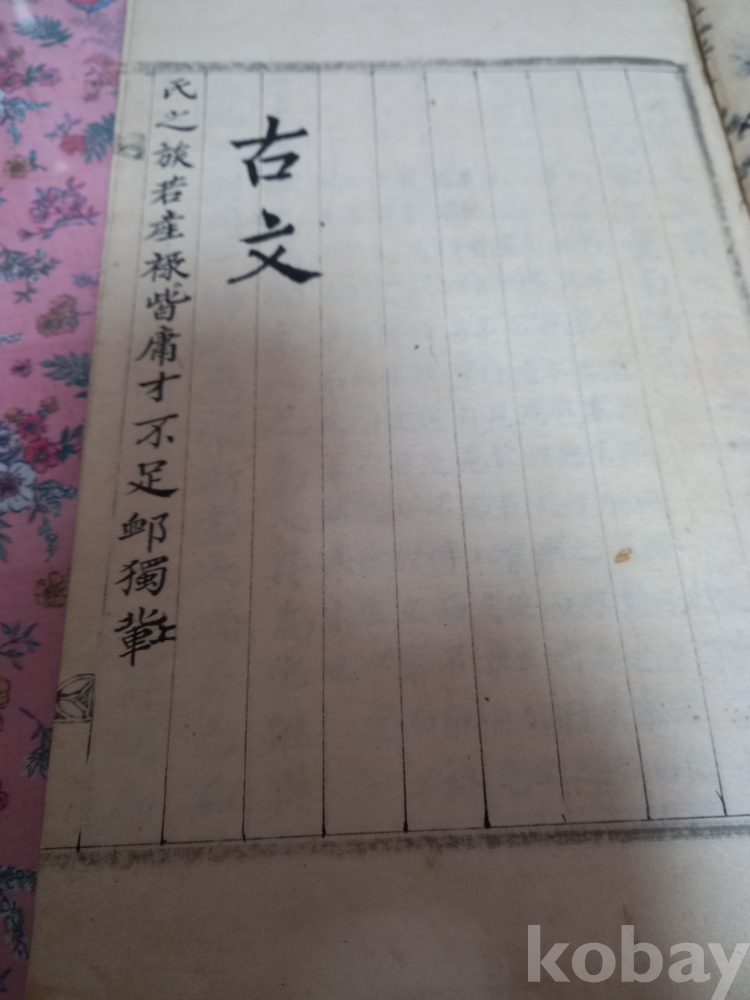 古文
氏之族若産祿皆庸才不足卹獨輩
kobay